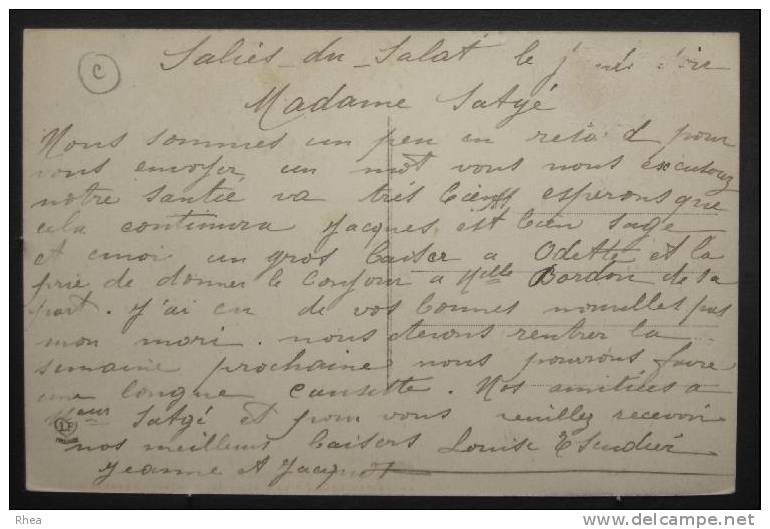 Salies-du-Salat le
C
Madame Satgé
Nous sommes un peu en retard pour
vous envoyer un mot vous nous excuserez
notre santée va très bien esperons que
cela continura Jacques est bien sage
et envoi un gros baiser a Odette et la
prie de donner le bonjour a Melle Bordon de sa
part. J'ai eu de vos bonnes nouvelles par
mon mari. nous devons rentrer la
semaine prochaine nous pourrons faire
une longue causette. Nos amitiées a
Satgé et pour vous veuillez recevoir
nos meilleurs baisers Louise Escudier
Jeanne et Jacques
Rhea
delcampe.net